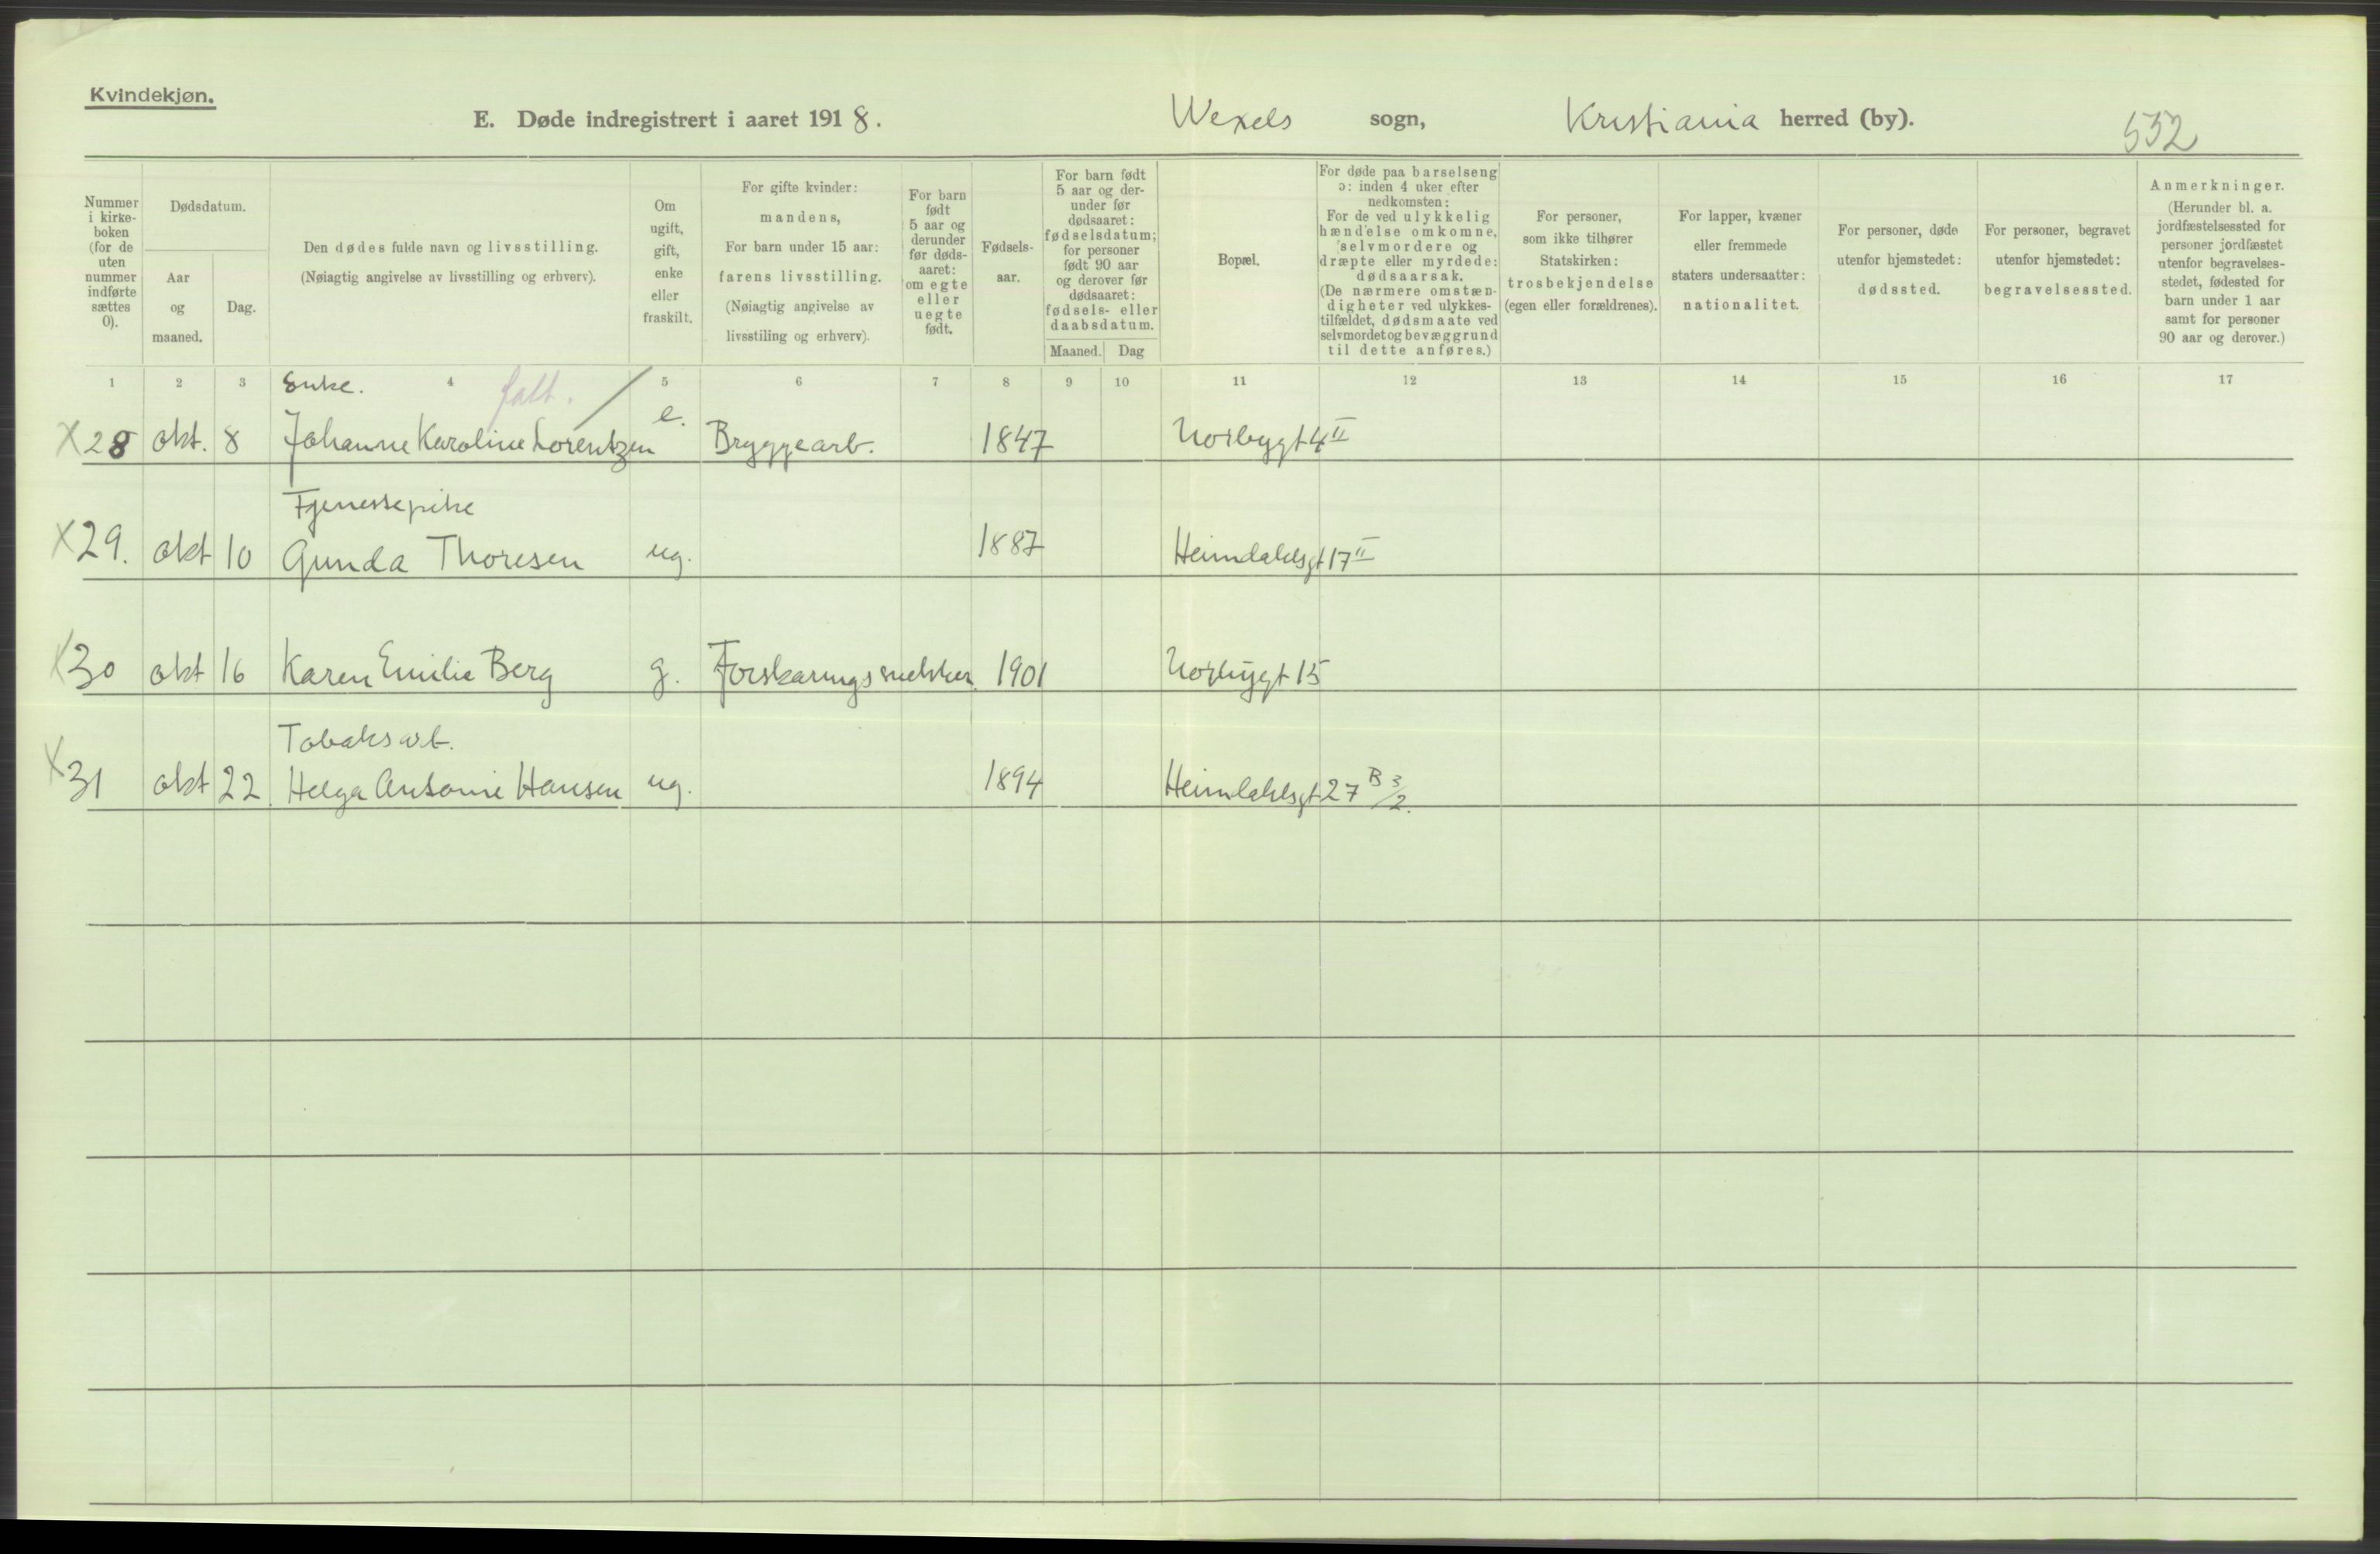 Kvindekjøn.
E. Døde indregistrert i aaret 1918.
Wexels sogn,
Kristiania herred (by).
532
Nummer i kirke-boken (for de uten nummer indførte sættes 0).
Dødsdatum.
Aar og maaned.
Dag.
Den dødes fulde navn og livsstilling.
(Nøiagtig angivelse av livsstilling og erhverv).
Om ugift, gift, enke eller fraskilt.
For gifte kvinder:
mandens,
For barn under 15 aar:
farens livsstilling.
(Nøiagtig angivelse av
livsstiling og erhverv).
For barn født 5 aar og derunder før døds-aaret: om egte eller uegte født.
Fødsels-aar.
For barn født
5 aar og der-
under før
dødsaaret:
fødselsdatum;
for personer
født 90 aar
og derover før
dødsaaret:
fødsels- eller
daabsdatum.
Maaned. Dag
Bopæl.
For døde paa barselseng
ɔ: inden 4 uker efter
nedkomsten:
For de ved ulykkelig
hændelse omkomne,
selvmordere og
dræpte eller myrdede:
dødsaarsak.
(De nærmere omstæn-
digheter ved ulykkes-
tilfældet, dødsmaate ved
selvmordet og bevæggrund
til dette anføres.)
For personer,
som ikke tilhører
Statskirken:
trosbekjendelse
(egen eller forældrenes).
For lapper, kvæner
eller fremmede
staters undersaatter:
nationalitet.
For personer, døde
utenfor hjemstedet:
dødssted.
For personer, begravet
utenfor hjemstedet:
begravelsessted.
Anmerkninger.
(Herunder bl. a.
jordfæstelsessted for
personer jordfæstet
utenfor begravelses-
stedet, fødested for
barn under 1 aar
samt for personer
90 aar og derover.)
1 2 3 4 5 6 7 8 9 10 11 12 13 14 15 16 17
Enke. falt.
X 28 okt. 8 Johanne Karoline Lorentzen e. Bryggearb. 1847 Norbygt 4 II
Tjenestepike
X 29. okt 10 Gunda Thoresen ug. 1887 Heimdalsgt 17 II
X 30 okt 16 Karen Emilie Berg g. 1901 Norbygt 15
Tobaksarb.
X 31 okt 22 Helga Antonie Hansen ug. 1894 Heimdalsgt 27 B 3/2.